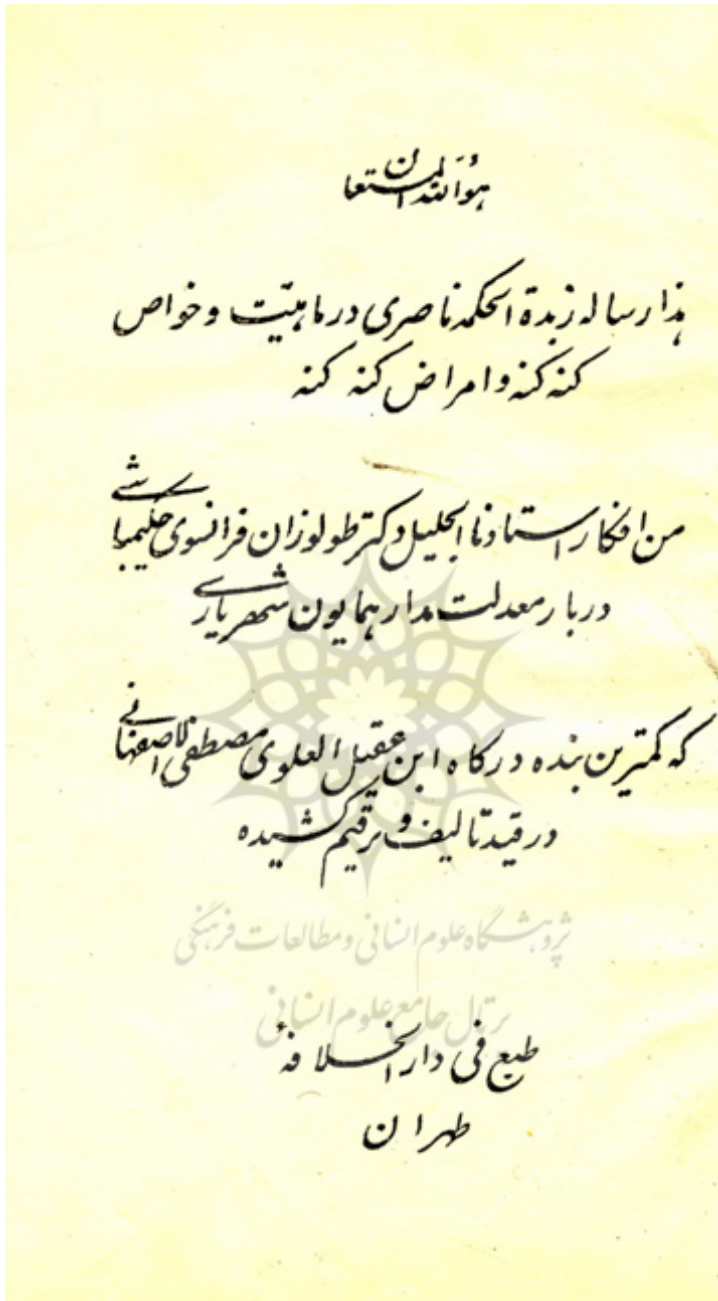 هوالله المستعان
هذا رساله زبدة الحکمه ناصری در ماهیّت و خواص
کنه کنه و امراض کنه کنه
من افکار استادنا الجلیل دکتر طولوزان فرانسوی حکیمباشی
دربار معدلت مدار همایون شهریاری
که کمترین بنده درکاه ابن عقیل العلوی مصطفی الاصفهانی
در قید تالیف و ترقیم کشیده
پژوهشگاه علوم انسانی و مطالعات فرهنگی
پرتال جامع علوم انسانی
طبع فی دار الخلافهٔ
طهران